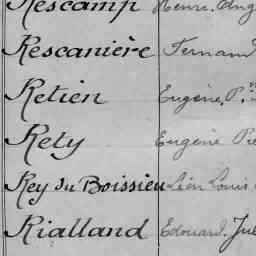 Rescamp Henri, Aug
Rescanière Fernand
Retien Eugène, P.
Rety Eugène Pie
Rey du Boissieu Léon Louis
Rialland Edouard, Jul